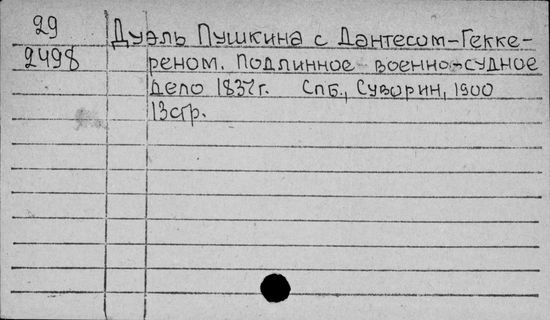 29 Дуэль Пушкина с Дантесом-Гекке-
2498 реном. Подлинное военно-судное
дело 1837г. Спб., Суворин, 1900
13стр.